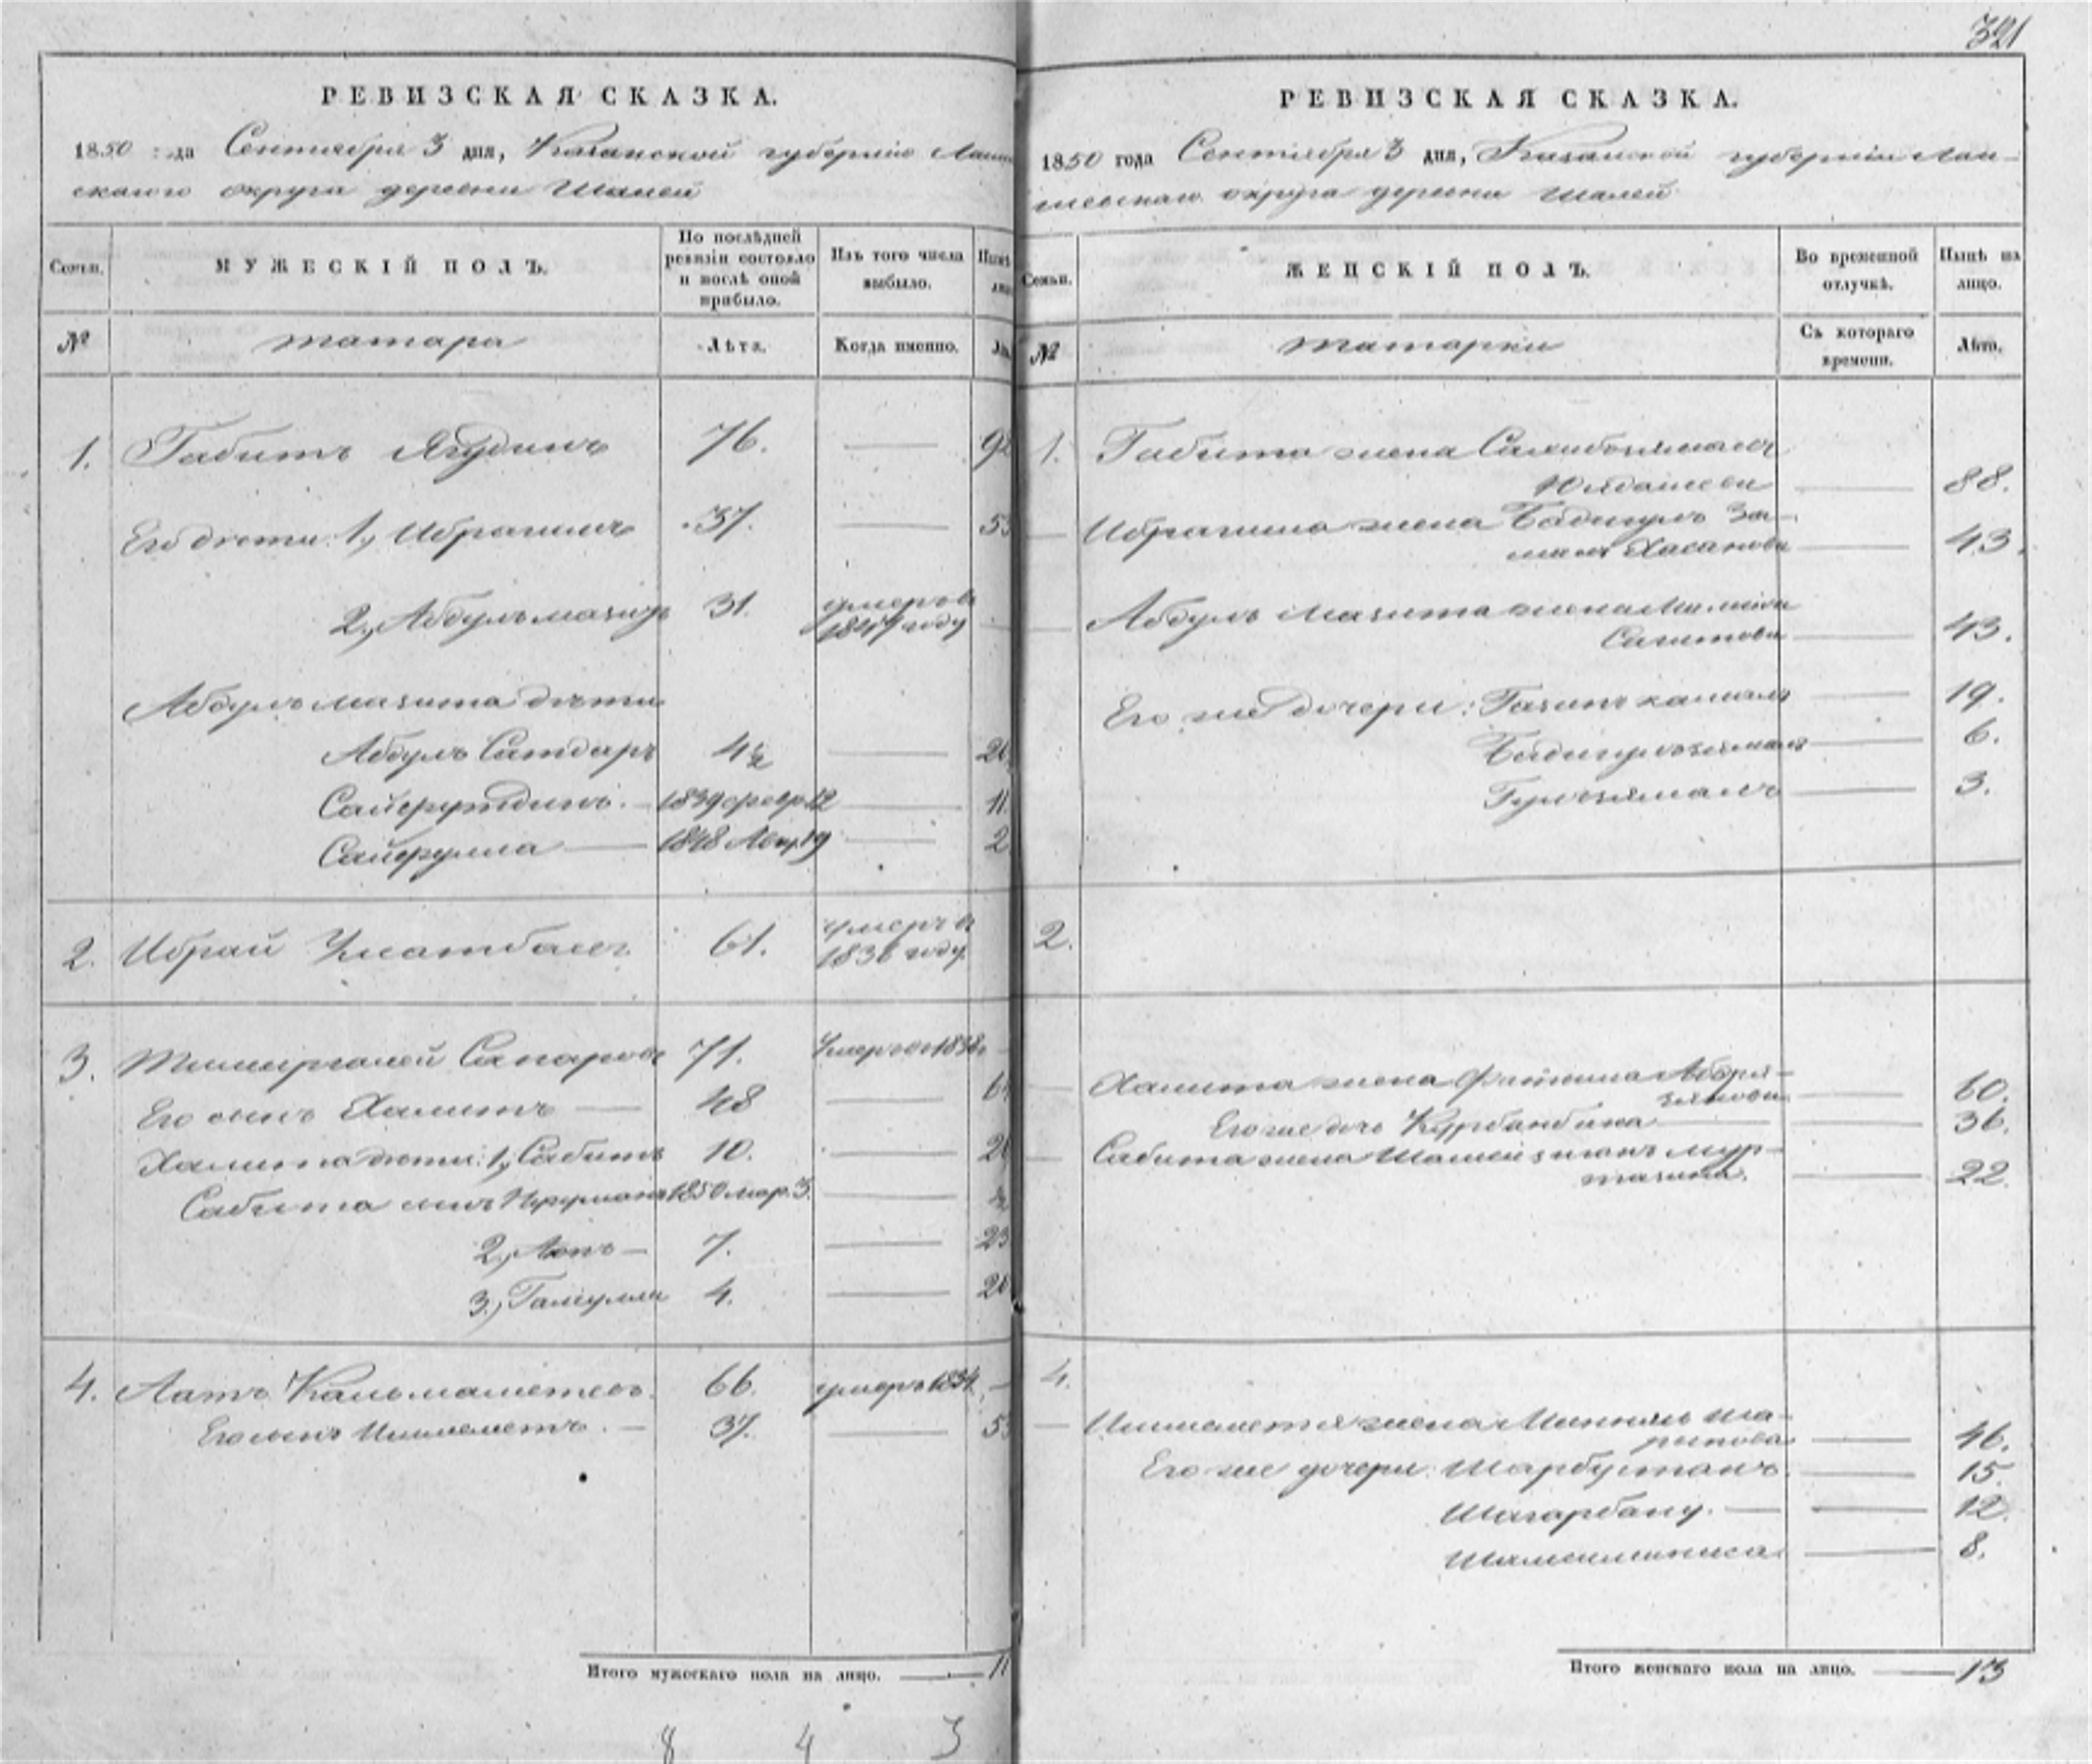 321
РЕВИЗСКАЯ СКАЗКА.
1850 года Сентября 3 дня, Казанской губернiи Лаи
скаго округа деревни Шалей
Семьи.
МУЖЕСКIЙ ПОЛЪ.
По послѣдней ревизiи состояло и послѣ оной прибыло.
Изъ того числа выбыло.
№
татара
Лѣта.
Когда именно.
1. Габитъ Ягудинъ 76. — 92
Его дѣти: 1, Ибрагимъ 37. — 53
2, Абдулъмазитъ 31. умеръ въ
1847 году —
Абдулъмазита дѣти
Абдулъ Сатдаръ 4½ — 20
Сайфутдинъ. — 1839 февр. 12 — 11.
Сайфулла — 1848 Авгу. 19 — 2.
2. Ибрай 61. умеръ въ
1836 году.
3. Тимиргалей Сапаровъ 71. Умеръ въ 1838 —
Его сынъ Халитъ — 48 — 64
Халита дѣти: 1, Сабитъ 10. — 26
Сабита сынъ 1850 мар. 3. — ½
2, — 7. — 23
3, Галиулла 4. — 20
4. Латъ Кальмаметевъ. 66. умеръ 1834. —
Его сынъ Ишмаметъ. — 37. — 53
Итого мужескаго пола на лицо. — 11
8 4 3
РЕВИЗСКАЯ СКАЗКА.
1850 года Сентября 3 дня, Казанской губернiи Лаи-
шевскаго округа деревни Шалей
Семьи.
ЖЕНСКIЙ ПОЛЪ.
Во временной отлучкѣ.
Нынѣ на лицо.
№
татарки
Съ котораго времени.
Лѣта.
1. Габита жена
Юлдашева — 88.
— Ибрагима жена Бадигулъ За-
малъ Хасанова — 43.
— Абдулъ Мазита жена
Сагитова — 43.
Его же дочери: — 19.
Бадигулъзямалъ — 6.
Гульзямалъ — 3.
2.
— Халита жена Фатима Абдря-
зякова — 60.
Его же дочь Курбанбика — 36.
— Сабита жена Мур-
тазина. — 22.
4.
— Ишмаметя жена Ша-
рыпова — 46.
Его же дочери: Шарбустанъ. — 15.
Шагарбану. — 12.
Шамсиниса. — 8.
Итого женскаго пола на лицо. — 13